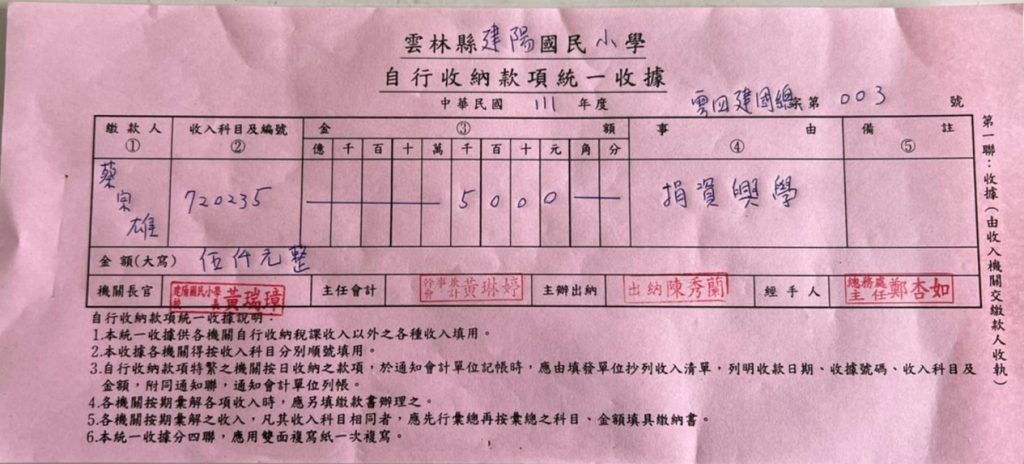 雲林縣建陽國民小學
自行收納款項統一收據
中華民國 111 年度 雲四建國總字第 003 號
繳款人 收入科目及編號 金 ③ 額 事 由 備 註
① ② 億 千 百 十 萬 千 百 十 元 角 分 ④ ⑤
蔡宗雄 720235 5 0 0 0 捐資興學
金額(大寫) 伍仟元整
機關長官 建陽國民小學校長 黃瑞璋 主任會計 黃琳婷 主辦出納 出納 陳秀蘭 經手人 總務處主任 鄭杏如
自行收納款項統一收據說明:
1.本統一收據供各機關自行收納稅課收入以外之各種收入填用。
2.本收據各機關得按收入科目分別順號填用。
3.自行收納款項特繁之機關按日收納之款項,於通知會計單位記帳時,應由填發單位抄列收入清單,列明收款日期、收據號碼、收入科目及
金額,附同通知聯,通知會計單位列帳。
4.各機關按期彙解各項收入時,應另填繳款書辦理之。
5.各機關按期彙解之收入,凡其收入科目相同者,應先行彙總再按彙總之科目、金額填具繳納書。
6.本統一收據分四聯,應用雙面複寫紙一次複寫。
第一聯:收據(由收入機關交繳款人收執)